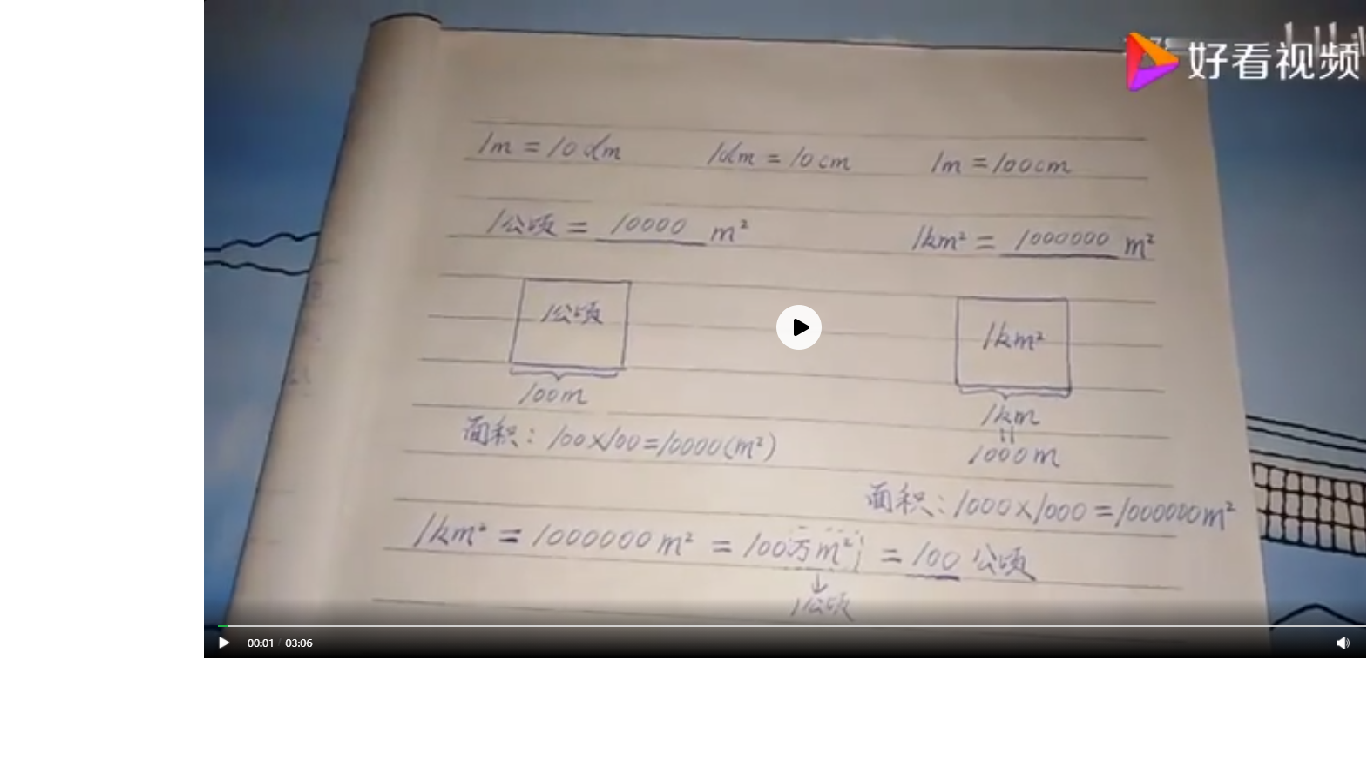 好看视频
1m = 10dm 1dm = 10cm 1m = 100cm
1公顷 = 10000 m² 1km² = 1000000 m²
1公顷 1km²
100m 1km
=
1000m
面积: 100×100=10000(m²)
面积: 1000×1000=1000000m²
1km² = 1000000m² = 100万m² = 100 公顷
↓
1公顷
00:01 / 03:06